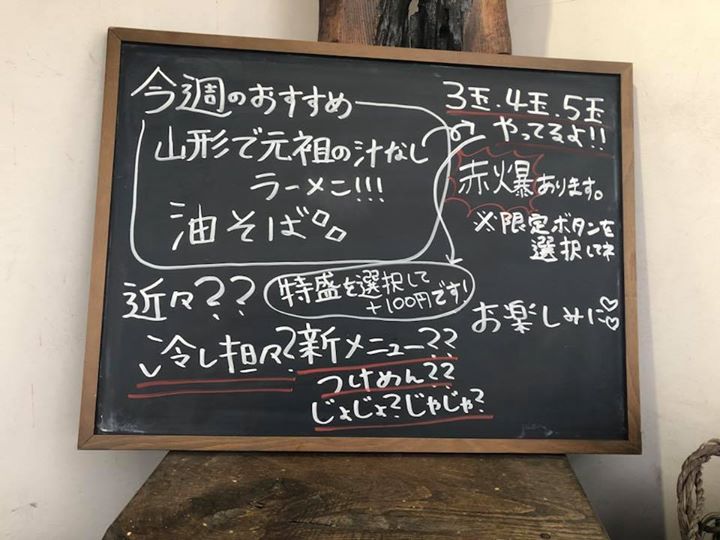 今週のおすすめ
山形で元祖の汁なし
ラーメン!!!
油そば
3玉.4玉.5玉
やってるよ!!
赤爆あります。
※限定ボタンを
選択してネ
特盛を選択して
+100円です!
近々??
お楽しみに♡♡
冷し担々?新メニュー??
つけめん??
じょじょ?じゃじゃ?